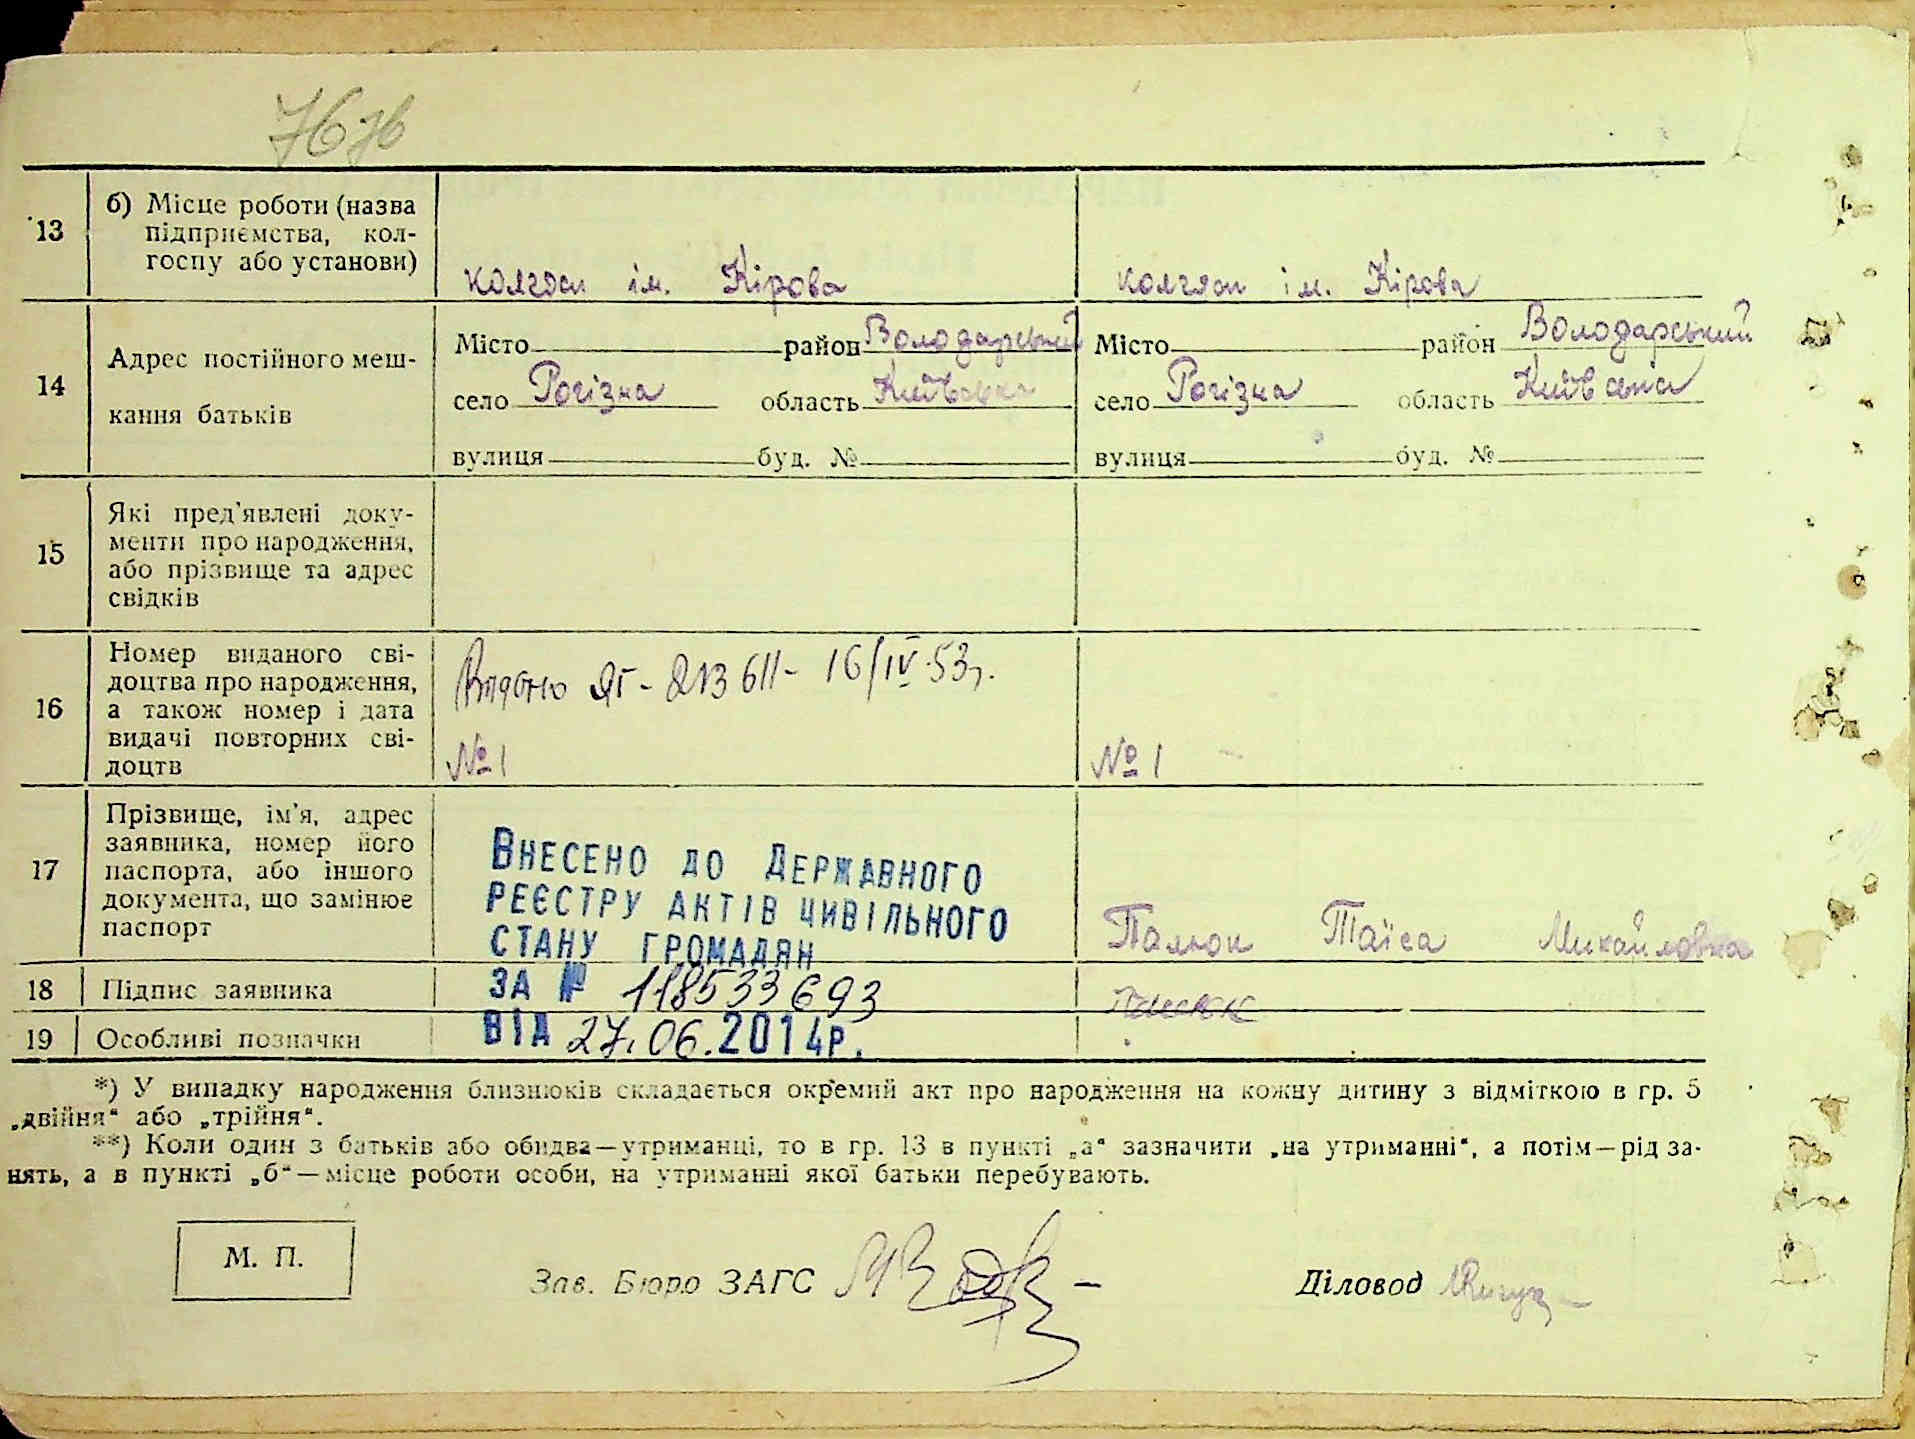 76 зв
13
б) Місце роботи (назва
підприємства, кол-
госпу або установи)
колгосп ім. Кірова
колгосп ім. Кірова
14
Адрес постійного меш-
кання батьків
Місто район Володарський
село Рогізна область Київська
вулиця буд. №
Місто район Володарський
село Рогізна область Київська
вулиця буд. №
15
Які пред'явлені доку-
менти про народження,
або прізвище та адрес
свідків
16
Номер виданого сві-
доцтва про народження,
а також номер і дата
видачі повторних сві-
доцтв
Видано ЯГ - 213611 - 16/IV-53г.
№ 1
№ 1
17
Прізвище, ім'я, адрес
заявника, номер його
паспорта, або іншого
документа, що замінює
паспорт
Внесено до Державного
реєстру актів цивільного
стану громадян
за № 118533693
від 27.06.2014р.
Таїса Михайловна
18
Підпис заявника
19
Особливі позначки
*) У випадку народження близнюків складається окремий акт про народження на кожну дитину з відміткою в гр. 5
„двійня“ або „трійня“.
**) Коли один з батьків або обидва—утриманці, то в гр. 13 в пункті „а“ зазначити „на утриманні“, а потім—рід за-
нять, а в пункті „б“—місце роботи особи, на утриманні якої батьки перебувають.
М. П.
Зав. Бюро ЗАГС
Діловод